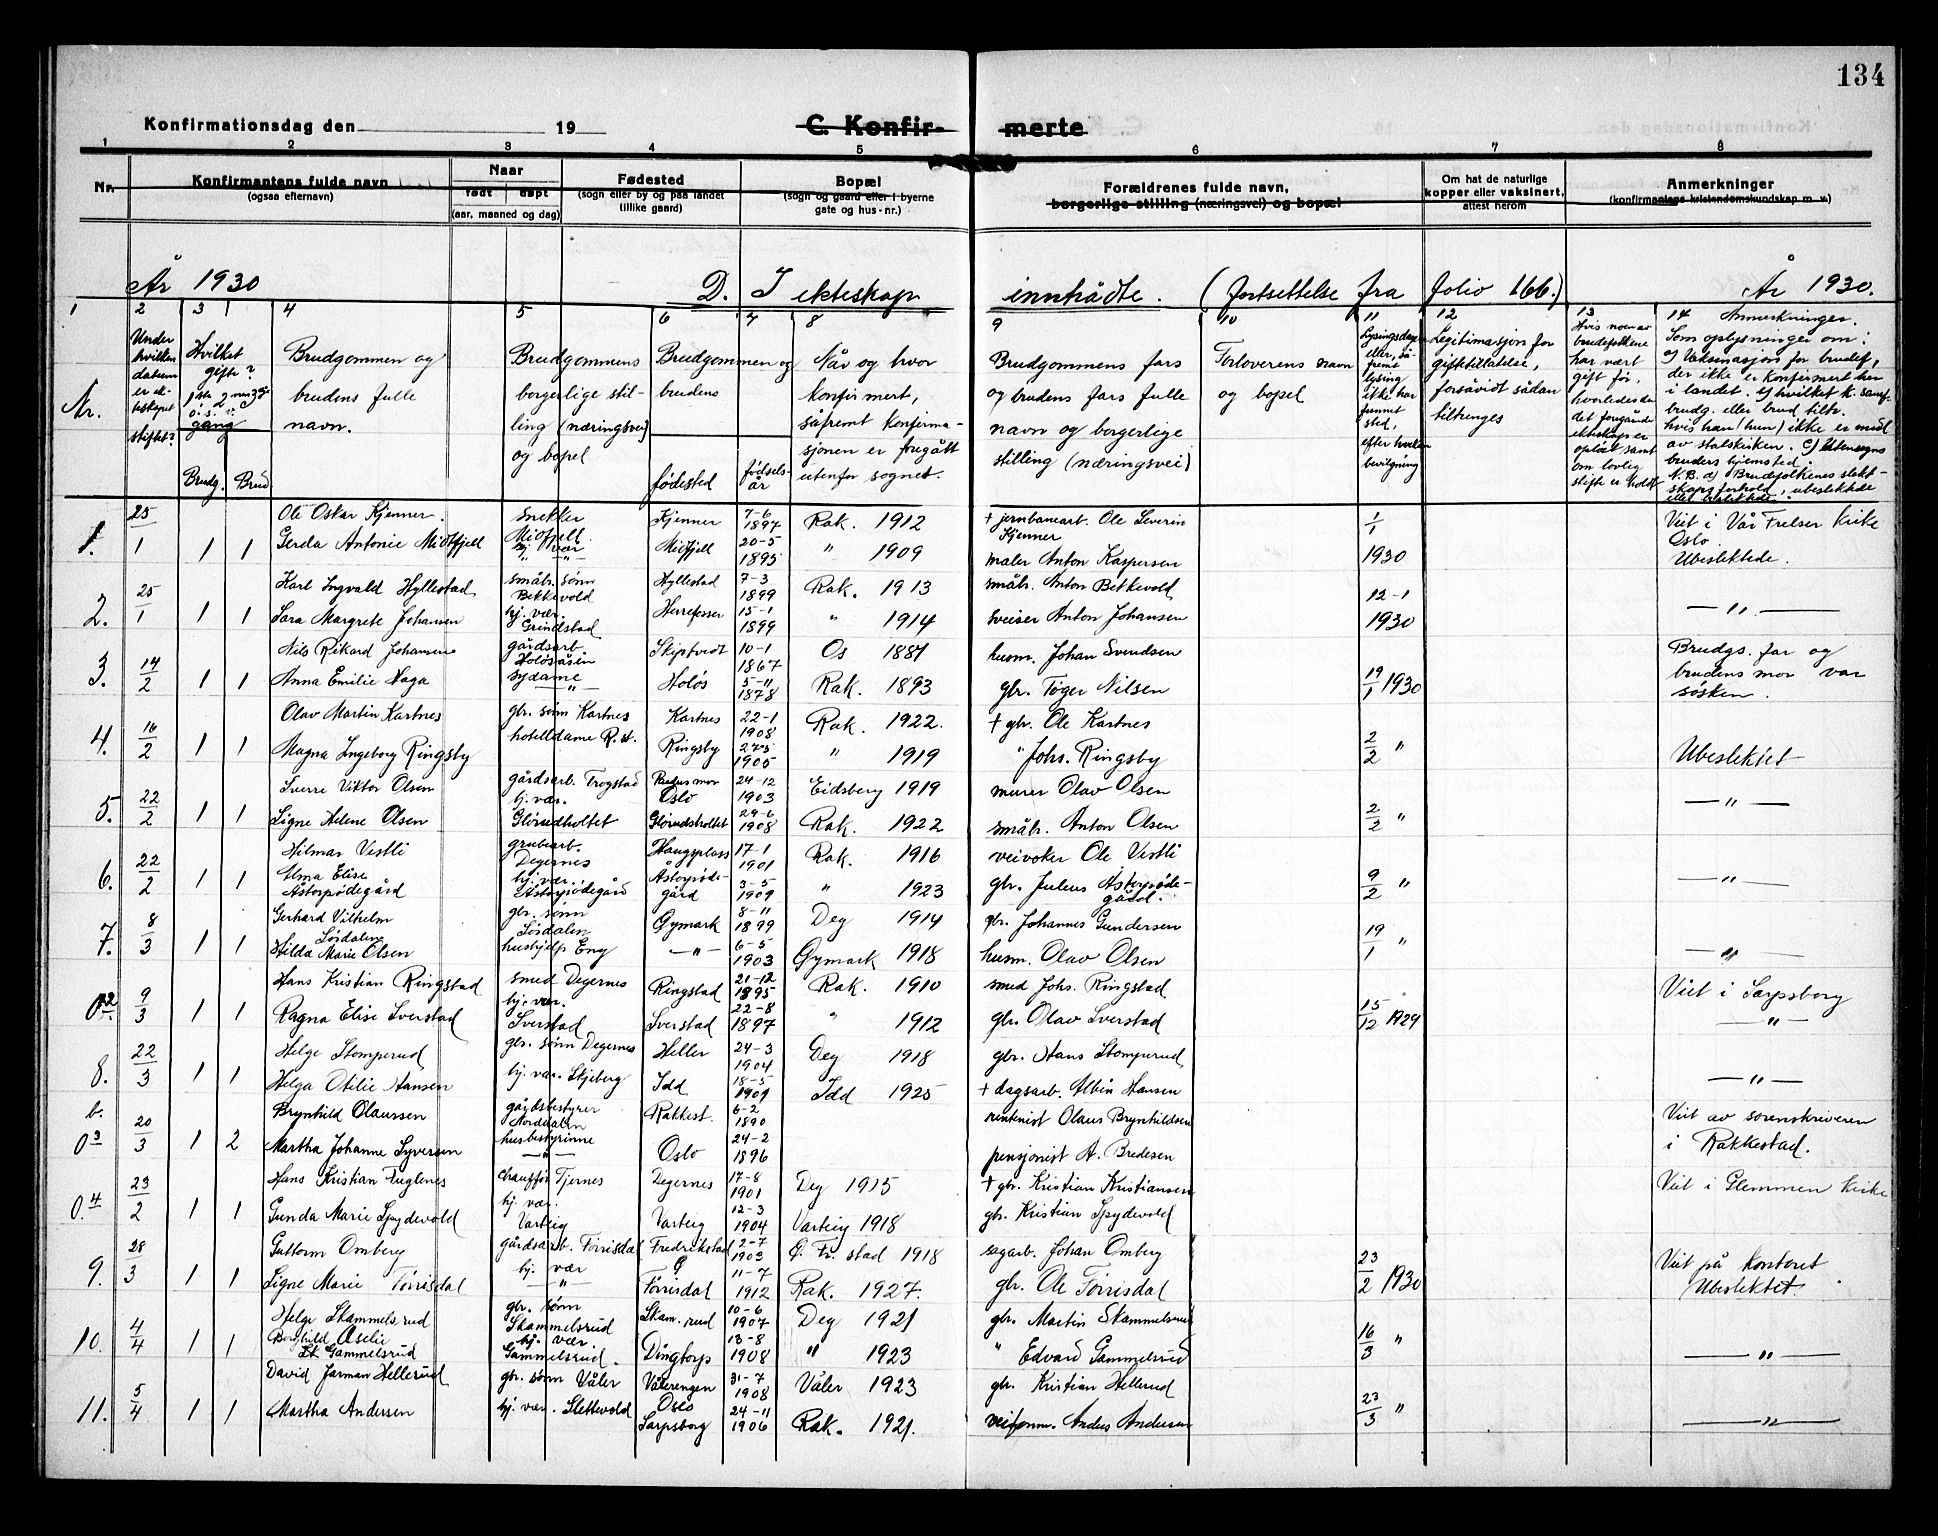 134
Konfirmationsdag den 19
C. Konfirmerte
1 2 3 4 5 6 7 8
Nr.
Konfirmantens fulde navn
(ogsaa efternavn)
Naar
født døpt
(aar, maaned og dag)
Fødested
(sogn eller by og paa landet
tillike gaard)
Bopæl
(sogn og gaard eller i byerne
gate og hus-nr.)
Forældrenes fulde navn,
borgerlige stilling (næringsvei) og bopæl
Om hat de naturlige
kopper eller vaksinert,
attest herom
Anmerkninger
(konfirmantens kristendomskundskap m. v.)
År 1930 D. I ekteskap inntrådte. (fortsettelse fra folio 166.) År 1930.
1 2 3 4 5 6 7 8 9 10 11 12 13 14
Nr.
Under
hvilken
datum
er ek-
teskapet
stiftet?
Hvilket
gifte?
1ste 2net 3dje
o. s. v.
gang
Brudg. Brud
Brudgommen og
brudens fulle
navn.
Brudgommens
borgerlige stil-
ling (næringsvei)
og bopel
Brudgommen og
brudens
fødested
fødsels-
år
Når og hvor
konfirmert,
såfremt konfirma-
sjonen er foregått
utenfor sognet.
Brudgommens fars
og brudens fars fulle
navn og borgerlige
stilling (næringsvei)
Forloverens navn
og bopel
Lysingsdagen
eller, så-
fremt
lysing
ikke har
funnet
sted,
efter hvilken
bevilgning
Legitimasjon for
gifttillatelse,
forsåvidt sådan
tiltrenges
Hvis noen av
brudefolkene
har vært
gift før,
hvorledes da
det foregående
ekteskap er
opløst samt
om lovlig
skifte er holdt
Anmerkninger.
Som oplysninger om:
a) Vaksinasjon for brudef,
der ikke er konfirmert her
i landet. b) hvilket k. samf.
brudg. eller brud tilh.
hvis han (hun) ikke er medl
av statskirken. c) Utensogns
bruders hjemsted.
N.B. d) Brudefolkenes slekt-
skapsforhold, ubeslektede
eller beslektede.
1. 25/1 1 1 Ole Oskar Kjenner. snekker Midtfjell. Kjenner 7-6 1897 Rak. 1912 + jernbanearb. Ole Severin Kjenner 1/1 1930 Viet i Vår Frelser kirke Oslo.
Gerda Antonie Midtfjell hj. vær " Midtfjell 20-5 1895 " 1909 maler Anton Kaspersen Ubeslektede.
2. 25/1 1 1 Karl Ingvald Hyllestad småbr. sønn Bekkevold Hyllestad 7-3 1899 Rak. 1913 småbr. Anton Bekkevold 12-1 1930 — " —
Sara Margrete Johansen hj. vær. Grindstad Herrefosser 15-1 1899 " 1914 sveiser Anton Johansen
3. 14/2 1 1 Nils Rikard Johansen gårdsarb. Holøsåsen Skiptvedt 10-1 1867 Os 1881 husm. Johan Svendsen 19/1 1930 Brudgs. far og brudens mor var søsken.
Anna Emilie Haga sydame — " — Holøs 5-11 1878 Rak. 1893 gbr. Tøger Nilsen
4. 16/2 1 1 Olav Martin Kartnes gbr. sønn Kartnes Kartnes 22-1 1908 Rak. 1922. + gbr. Ole Kartnes 2/2 " Ubeslektet
Magna Ingeborg Ringsby hotelldame R. st. Ringsby 27-5 1905 " 1919 " Johs. Ringsby
5. 22/2 1 1 Sverre Viktor Olsen gårdsarb. Trogstad Oslo 24-12 1903 Eidsberg 1919 murer Olav Olsen 2/2 " — " —
Signe Helene Olsen hj. vær. Glorudholtet Glorudsholtet 29-6 1908 Rak. 1922 småbr. Anton Olsen
6. 22/2 1 1 Hilmar Vestli grubearb. Degernes Haugsplass 17-1 1901 Rak. 1916 veivokter Ole Vestli 9/2 " — " —
Alma Elise Astorpødegård hj. vær. Astorpødegård Åstorpødegård 3-5 1909 " 1923 gbr. Julius Astorpødegård.
7. 8/3 1 1 Gerhard Vilhelm Sørdalen gbr. sønn Sørdalen Øymark 8-11 1899 Deg 1914 gbr. Johannes Gundersen 19/1 " — " —
Hilda Marie Olsen hushjelp Eng — " — 6-5 1903 Øymark 1918 husm. Olav Olsen
02. 9/3 1 1 Hans Kristian Ringstad smed Degernes Ringstad 21-12 1895 Rak. 1910 smed Johs. Ringstad 15/12 1929 Viet i Sarpsborg
Ragna Elise Sverstad hj. vær. Sverstad Sverstad 22-8 1897 " 1912 gbr. Olav Sverstad — " —
8. 22/3 1 1 Helge Stomperud gbr. sønn Degernes Heller 24-3 1904 Deg 1918 gbr. Hans Stomperud
Helga Otilie Hansen hj. vær. Skjeberg Idd 18-5 1909 Idd 1925 + dagsarb. Albin Hansen — " —
b. 03 20/3 1 2 Brynhild Olaussen gårdsbestyrer Norddalen Rakkest. 6-2 1890 rentenist Olaus Brynhildsen Viet av sorenskriveren i Rakkestad.
Martha Johanne Syversen husbestyrinne — " — Oslo 24-2 1896 pensjonist A. Bredesen
0.4 23/2 1 1 Hans Kristian Fuglenes chauffør Tjernes Degernes 17-8 1901 Deg 1915 + gbr. Kristian Kristiansen Viet i Glemmen kirke
Gunda Marie Spydevold hj. vær. Varteig Varteig 12-3 1904 Varteig 1918 gbr. Kristian Spydevold
9. 28/3 1 1 Guttorm Omberg gårdsarb. Torrisdal Fredrikstad Ø 2-7 1903 Ø. Fr. stad 1918 sagarb. Johan Omberg 23/2 1930 Viet på kontoret
Signe Marie Torrisdal hj. vær — " — Torrisdal 11-7 1912 Rak. 1927. gbr. Ole Torrisdal Ubeslektet
10. 4/4 1 1 Helge Skammelsrud gbr. sønn Skammelsrud Skam.rud 10-6 1907 Deg 1921 gbr. Martin Skammelsrud 16/3 " — " —
Borghild Aselie Gammelsrud hj. vær Gammelsrud. Dingtorp 13-8 1908 " 1923 " Edvard Gammelsrud
11. 5/4 1 1 David Jarman Hellerud gbr. sønn Våler Vålerengen Oslo 31-7 1908 Våler 1923 gbr. Kristian Hellerud 23/3 " — " —
Martha Andersen hj. vær. Slettevold Sarpsborg 24-11 1906 Rak. 1921. veiform. Anders Andersen